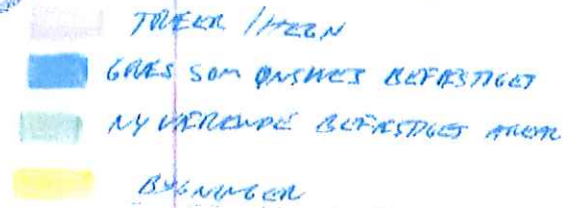 TRÆER / HEGN
GRÆS SOM ØNSKES BEFÆSTIGET
NUVÆRENDE BEFÆSTIGET AREAL
BYGNINGER